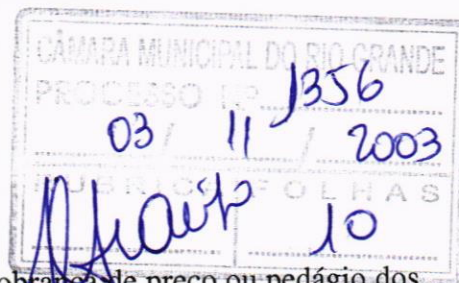 CÂMARA MUNICIPAL DO RIO GRANDE
PROCESSO Nº 1356
03 / 11 / 2003
RUBRICA FOLHAS
10
cobrança de preço ou pedágio dos